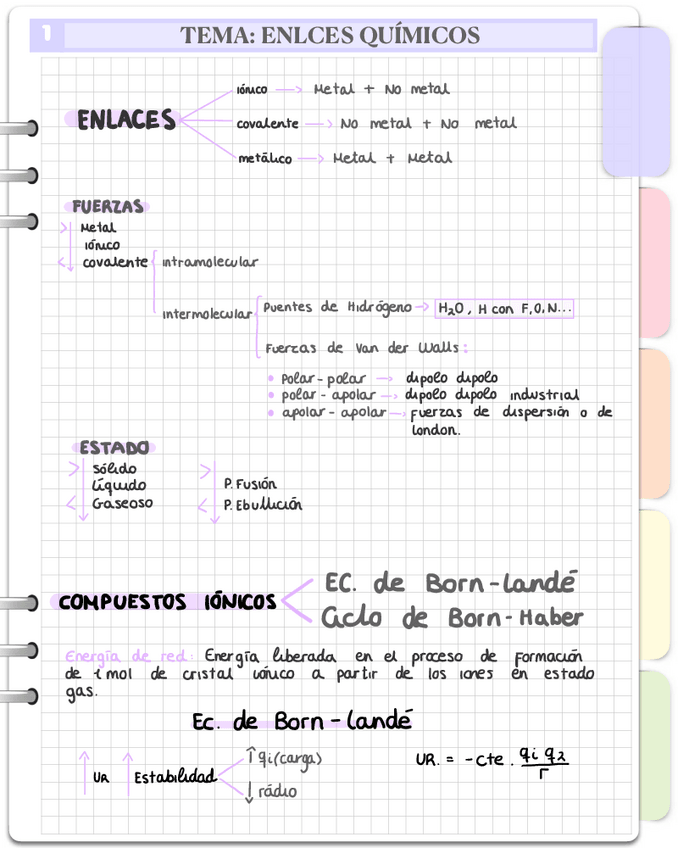 1
TEMA: ENLCES QUÍMICOS
iónico → Metal + No metal
ENLACES
covalente → No metal + No metal
metálico → Metal + Metal
FUERZAS
> Metal
iónico
< covalente
intramolecular
intermolecular
Puentes de Hidrógeno → H₂O, H con F,O,N...
Fuerzas de Van der Walls:
• Polar-polar → dipolo dipolo
• polar-apolar → dipolo dipolo industrial
• apolar-apolar → fuerzas de dispersión o de
london.
ESTADO
> Sólido >
Líquido P. Fusión
< Gaseoso < P. Ebullición
EC. de Born-landé
COMPUESTOS IÓNICOS
Ciclo de Born-Haber
Energía de red: Energía liberada en el proceso de formación
de 1 mol de cristal iónico a partir de los iones en estado
gas.
Ec. de Born-landé
↑ UR ↑ Estabilidad
↑ qi (carga)
↓ rádio
UR. = -cte . qi q2 / r